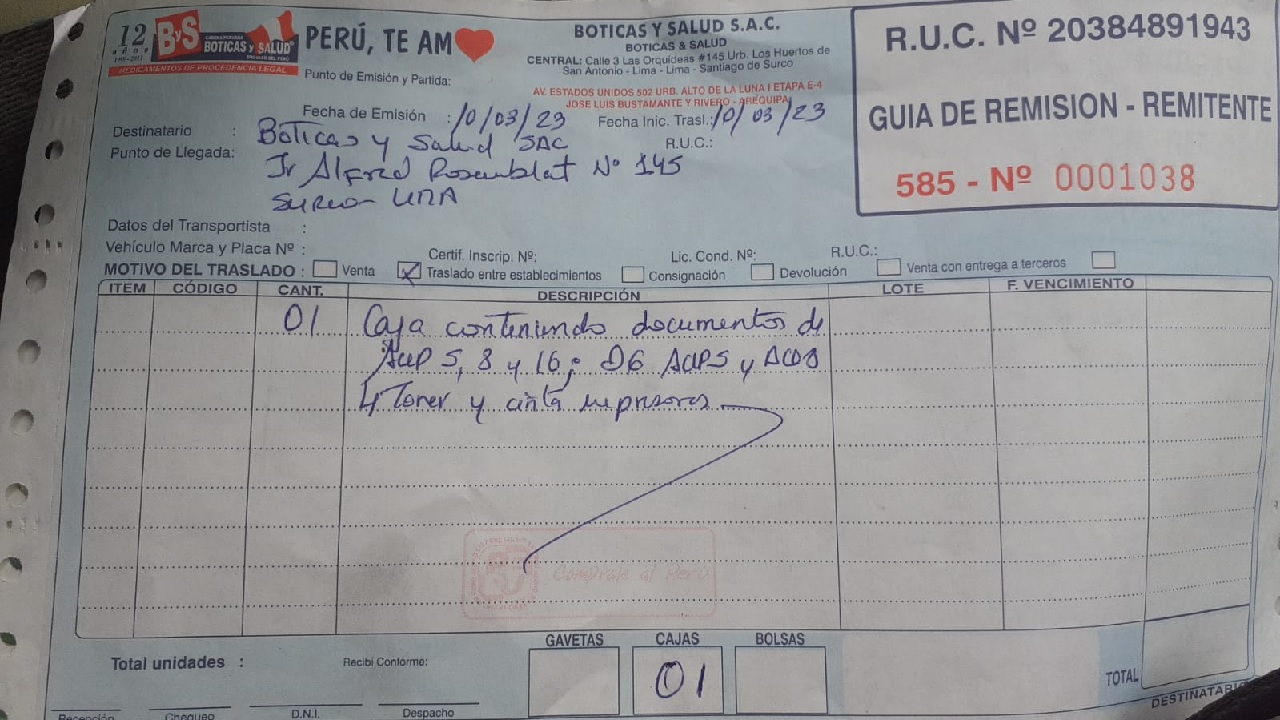 12
AÑOS
ByS
CADENA PERUANA
BOTICAS y SALUD
MEDICAMENTOS DE PROCEDENCIA LEGAL
PERÚ, TE AM
BOTICAS Y SALUD S.A.C.
BOTICAS & SALUD
CENTRAL: Calle 3 Las Orquídeas #145 Urb. Los Huertos de
San Antonio - Lima - Lima - Santiago de Surco
Punto de Emisión y Partida:
AV. ESTADOS UNIDOS 502 URB. ALTO DE LA LUNA I ETAPA E-4
JOSE LUIS BUSTAMANTE Y RIVERO - AREQUIPA
R.U.C. Nº 20384891943
GUIA DE REMISION - REMITENTE
585 - Nº 0001038
Fecha de Emisión : 10/03/23 Fecha Inic. Trasl.: 10/03/23
Destinatario : Boticas y Salud SAC R.U.C.:
Punto de Llegada: Jr Alfred Rosenblat Nº 145
Surco - LIMA
Datos del Transportista :
Vehículo Marca y Placa Nº : Certif. Inscrip. Nº: Lic. Cond. Nº: R.U.C.:
MOTIVO DEL TRASLADO : Venta Traslado entre establecimientos Consignación Devolución Venta con entrega a terceros
ITEM CÓDIGO CANT. DESCRIPCIÓN LOTE F. VENCIMIENTO
01 Caja conteniendo documentos de
5, 8 y 16; y
4 Toner y cinta impresoras
Cómprale al Perú
GAVETAS CAJAS BOLSAS
Total unidades : Recibí Conforme: 01 TOTAL
Recepción Chequeo D.N.I. Despacho DESTINATARIO